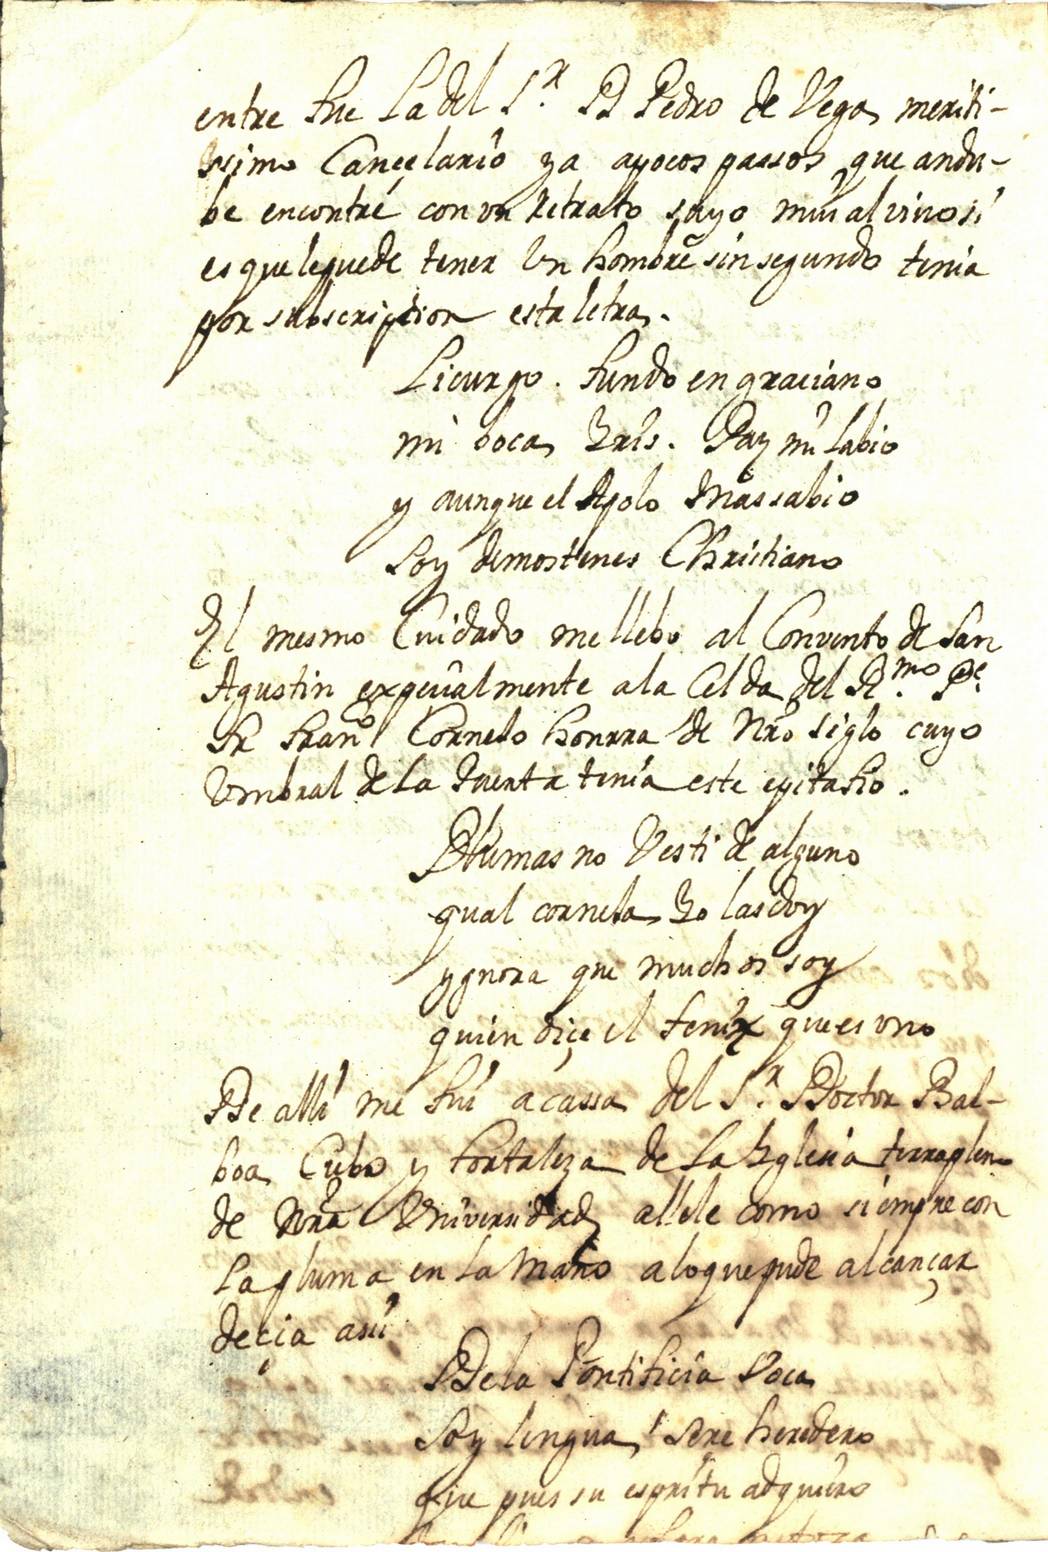 entre fue La del S.r D Pedro de Vega meriti-
ssimo Cancelario ya apocos passos que andu-
be encontré con vn Retrato suyo mui al vivo si
es que le puede tener Vn hombre sin segundo tenia
por subscription esta letra.
Licurgo. fundo en graciano
mi boca Yris. Paz mi labio
y aunque el Apolo Mas sabio
Soy demostenes Christiano
El mesmo Cuidado me llebo al Convento de San
Agustin expeçialmente ala Celda del R.mo Pe.
fr fran.o Cornejo honrra de Nro siglo cuyo
Vmbral de La puerta tenia este epitafio.
Plumas no Vesti de alguno
qual corneta Yo las doy
ygnora que muchos soy
quien diçe el fenix que es vno
De alli me fui a cassa del S.r Doctor Bal-
boa Cubo y fortaleza de La Yglesia terraplen
de Nra Vniversidad allele como siempre con
La pluma en la Mano alo que pude alcançar
deçia asi
De la Pontificia Voca
Soy lengua, sere heredero
que pues su espritu adquiero